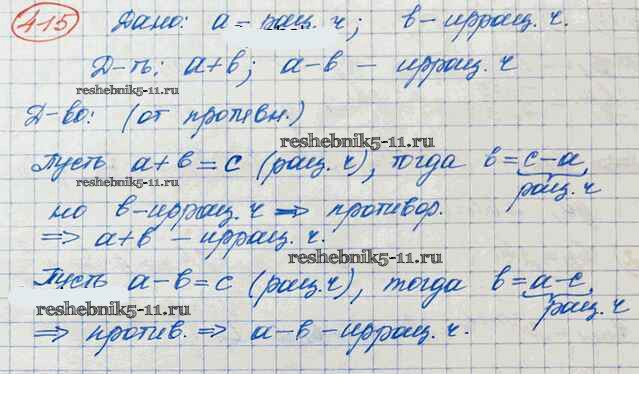 415 Дано: a - рац. ч; в - иррац. ч.
Д-ть: a+в; a-в - иррац. ч
reshebnik5-11.ru
Д-во: (от противн.)
reshebnik5-11.ru
Пусть a+в=c (рац. ч), тогда в=c-a,
reshebnik5-11.ru
рац. ч
но в-иррац. ч => противор.
=> a+в - иррац. ч.
reshebnik5-11.ru
Пусть a-в=c (рац. ч), тогда в=a-c,
reshebnik5-11.ru
рац. ч
=> против. => a-в-иррац. ч.